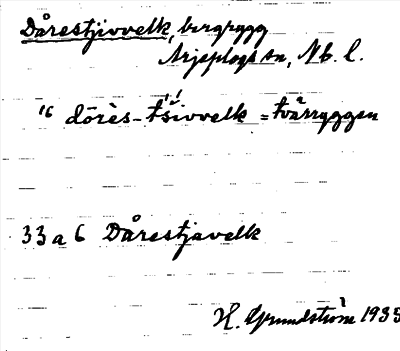 Dårestjivvelk, bergrygg
Arjeplogs sn, Nb. l.
16 dōrès-tšivvelk = tvärryggen
33 a 6 Dårestjavelk
H. Grundström 1935